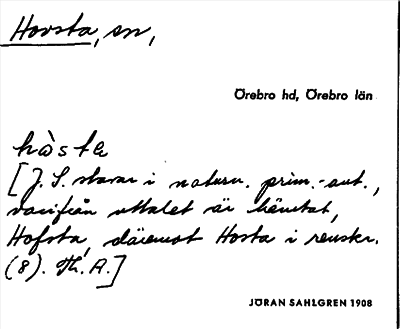 Hovsta, sn,
Örebro hd, Örebro län
hòsta
[J. S. skrev i naturn. prim.-ant.,
varifrån uttalet är hämtat,
Hofsta, däremot Hosta i renskr.
(8). Th. A.]
JÖRAN SAHLGREN 1908